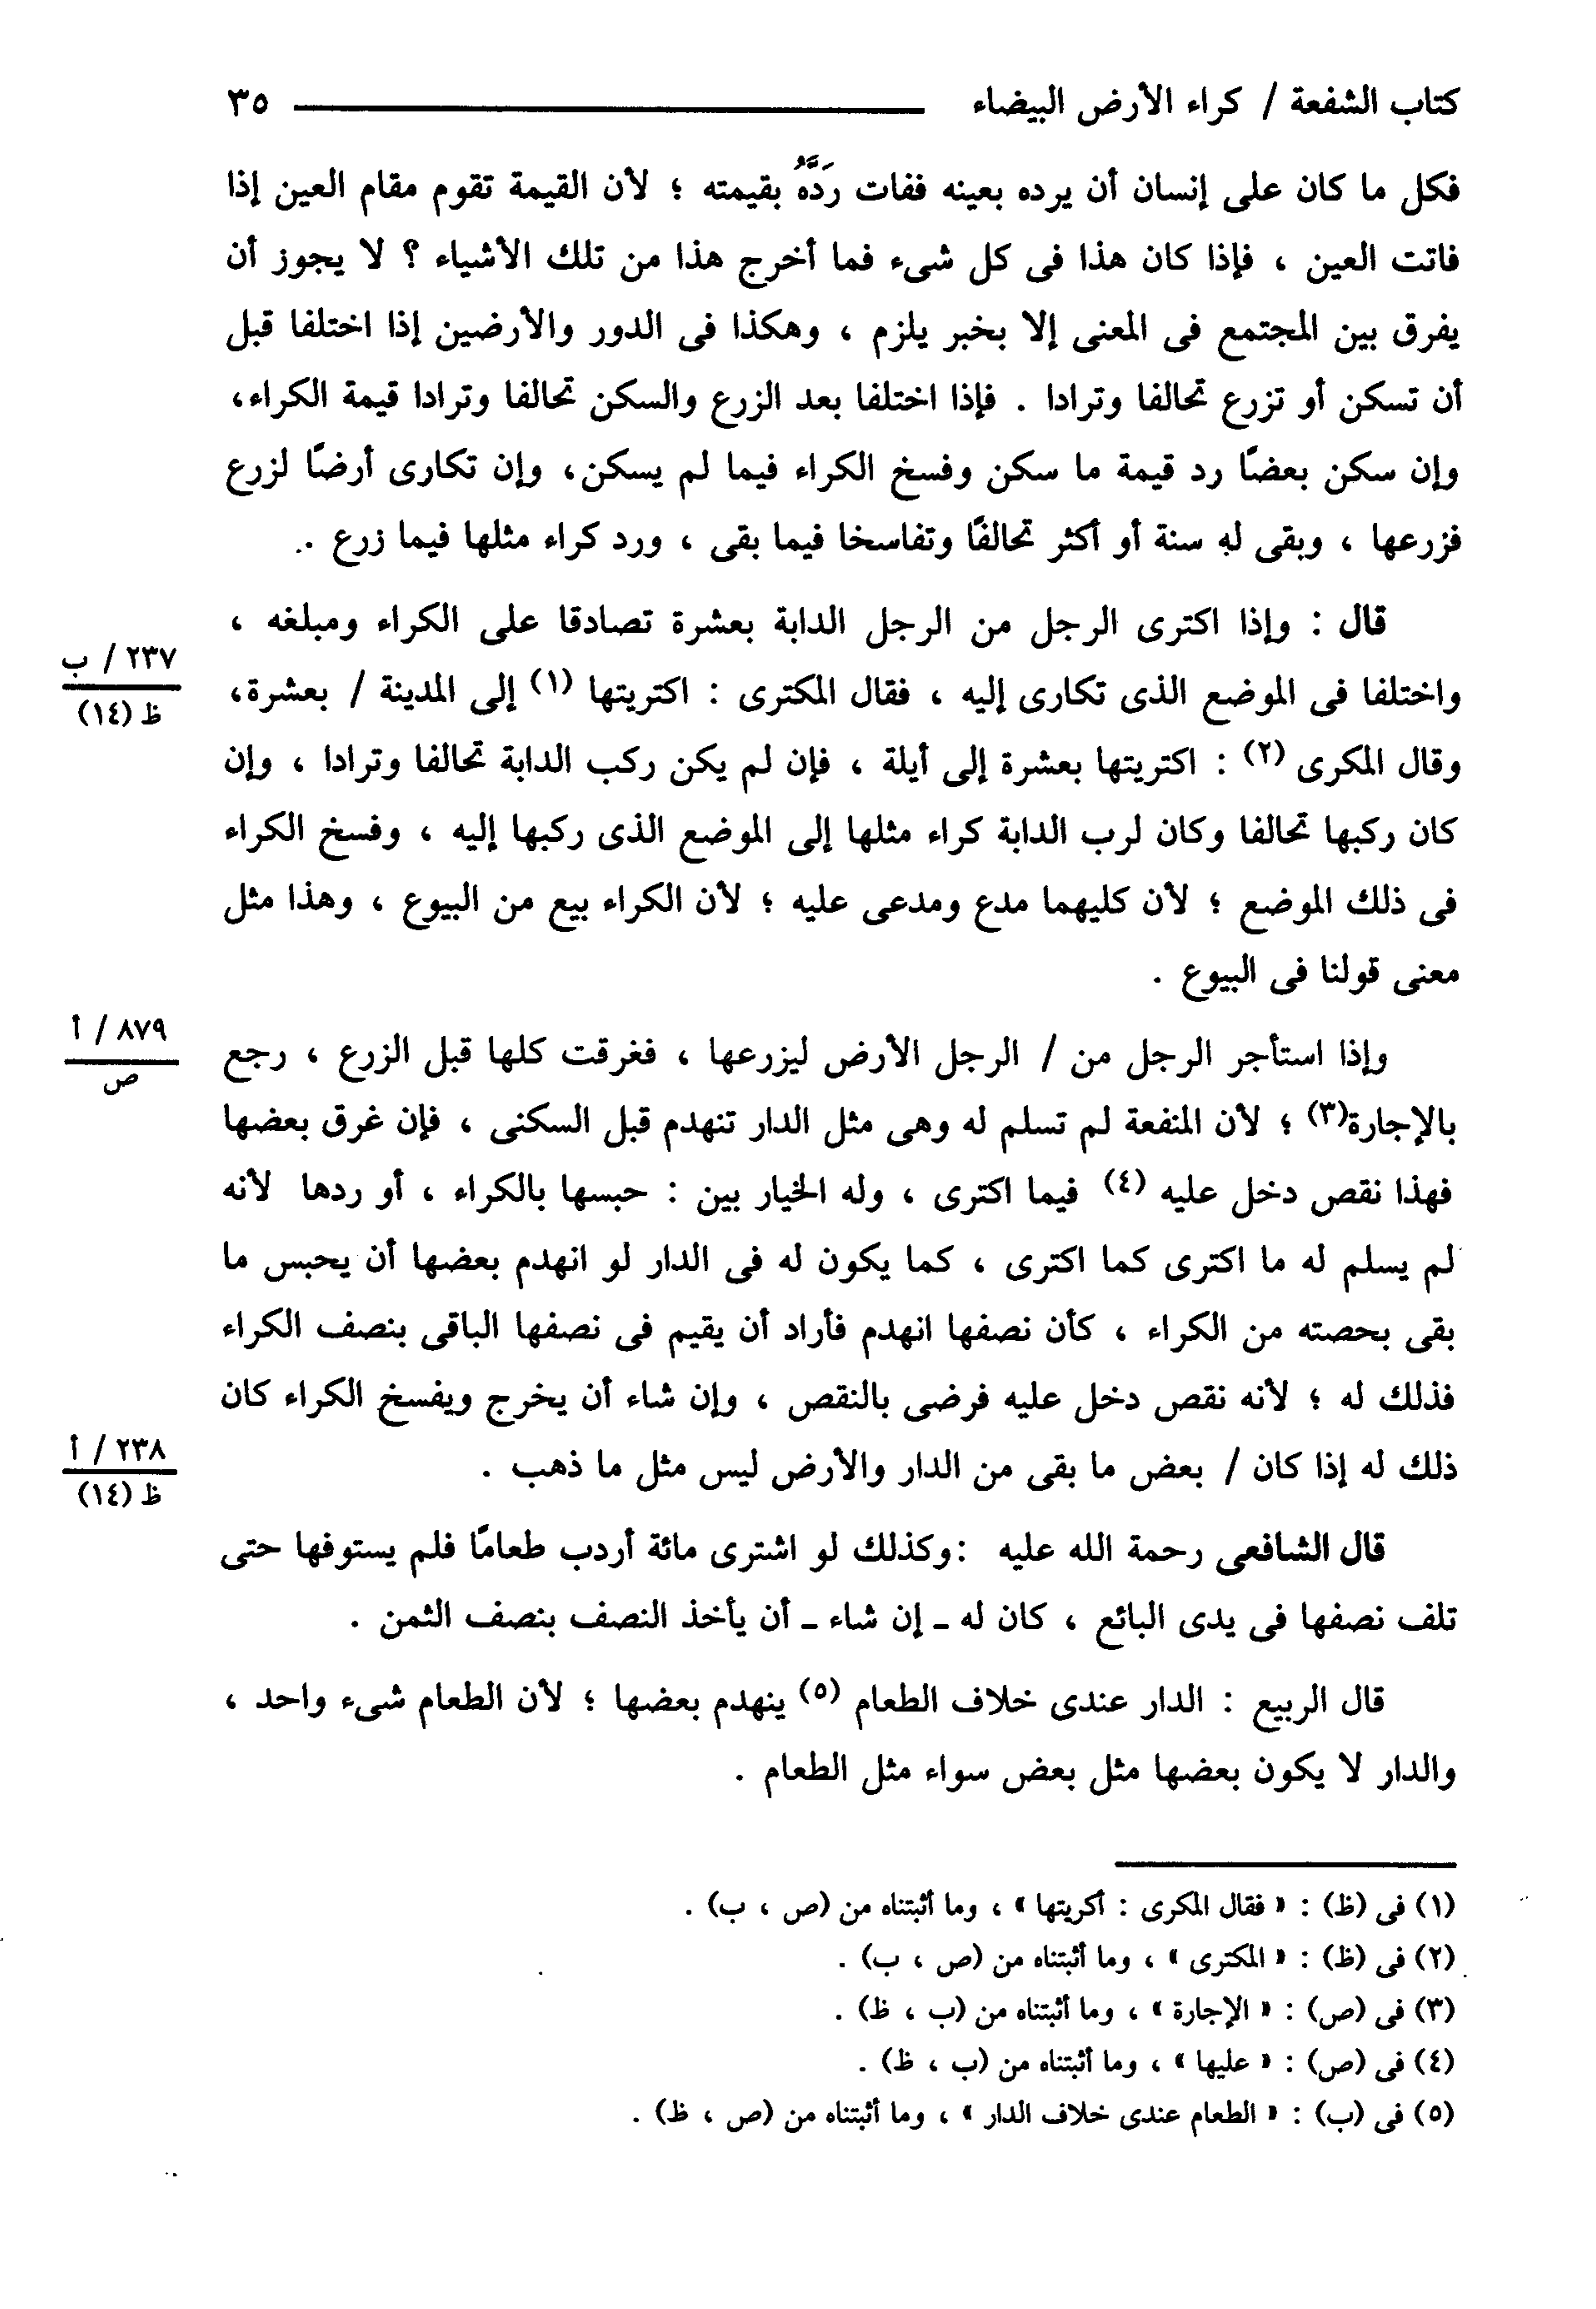 كتاب الشفعة / كراء الأرض البيضاء ٣٥
فكل ما كان على إنسان أن يرده بعينه ففات رَدَّهُ بقيمته ؛ لأن القيمة تقوم مقام العين إذا
فاتت العين ، فإذا كان هذا فى كل شىء فما أخرج هذا من تلك الأشياء ؟ لا يجوز أن
يفرق بين المجتمع فى المعنى إلا بخبر يلزم ، وهكذا فى الدور والأرضين إذا اختلفا قبل
أن تسكن أو تزرع تحالفا وترادا . فإذا اختلفا بعد الزرع والسكن تحالفا وترادا قيمة الكراء،
وإن سكن بعضًا رد قيمة ما سكن وفسخ الكراء فيما لم يسكن، وإن تكارى أرضًا لزرع
فزرعها ، وبقى له سنة أو أكثر تحالفًا وتفاسخا فيما بقى ، ورد كراء مثلها فيما زرع .
قال : وإذا اكترى الرجل من الرجل الدابة بعشرة تصادقا على الكراء ومبلغه ،
٢٣٧ / ب
ظ (١٤)
واختلفا فى الموضع الذى تكارى إليه ، فقال المكترى : اكتريتها (١) إلى المدينة / بعشرة،
وقال المكرى (٢) : اكتريتها بعشرة إلى أيلة ، فإن لم يكن ركب الدابة تحالفا وترادا ، وإن
كان ركبها تحالفا وكان لرب الدابة كراء مثلها إلى الموضع الذى ركبها إليه ، وفسخ الكراء
فى ذلك الموضع ؛ لأن كليهما مدع ومدعى عليه ؛ لأن الكراء بيع من البيوع ، وهذا مثل
معنى قولنا فى البيوع .
٨٧٩ / أ
ص
وإذا استأجر الرجل من / الرجل الأرض ليزرعها ، فغرقت كلها قبل الزرع ، رجع
بالإجارة(٣) ؛ لأن المنفعة لم تسلم له وهى مثل الدار تنهدم قبل السكنى ، فإن غرق بعضها
فهذا نقص دخل عليه (٤) فيما اكترى ، وله الخيار بين : حبسها بالكراء ، أو ردها لأنه
لم يسلم له ما اكترى كما اكترى ، كما يكون له فى الدار لو انهدم بعضها أن يحبس ما
بقى بحصته من الكراء ، كأن نصفها انهدم فأراد أن يقيم فى نصفها الباقى بنصف الكراء
فذلك له ؛ لأنه نقص دخل عليه فرضى بالنقص ، وإن شاء أن يخرج ويفسخ الكراء كان
٢٣٨ / أ
ظ (١٤)
ذلك له إذا كان / بعض ما بقى من الدار والأرض ليس مثل ما ذهب .
قال الشافعى رحمة الله عليه :وكذلك لو اشترى مائة أردب طعامًا فلم يستوفها حتى
تلف نصفها فى يدى البائع ، كان له ـ إن شاء ـ أن يأخذ النصف بنصف الثمن .
قال الربيع : الدار عندى خلاف الطعام (٥) ينهدم بعضها ؛ لأن الطعام شىء واحد ،
والدار لا يكون بعضها مثل بعض سواء مثل الطعام .
(١) فى (ظ) : « فقال المكرى : أكريتها » ، وما أثبتناه من (ص ، ب) .
(٢) فى (ظ) : « المكترى » ، وما أثبتناه من (ص ، ب) .
(٣) فى (ص) : « الإجارة » ، وما أثبتناه من (ب ، ظ) .
(٤) فى (ص) : « عليها » ، وما أثبتناه من (ب ، ظ) .
(٥) فى (ب) : « الطعام عندى خلاف الدار » ، وما أثبتناه من (ص ، ظ) .